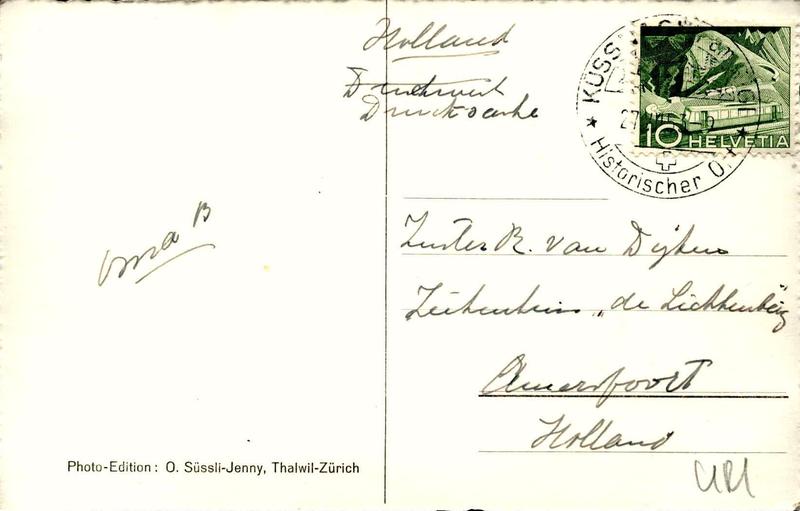 Holland
Drukwerk
Drucksache
KÜSSNACHT am RIGI
Historischer Ort
10 HELVETIA
Oma B
Zuster R. van Dijken
Ziekenhuis „de Lichtenberg"
Amersfoort
Holland
Photo-Edition: O. Süssli-Jenny, Thalwil-Zürich